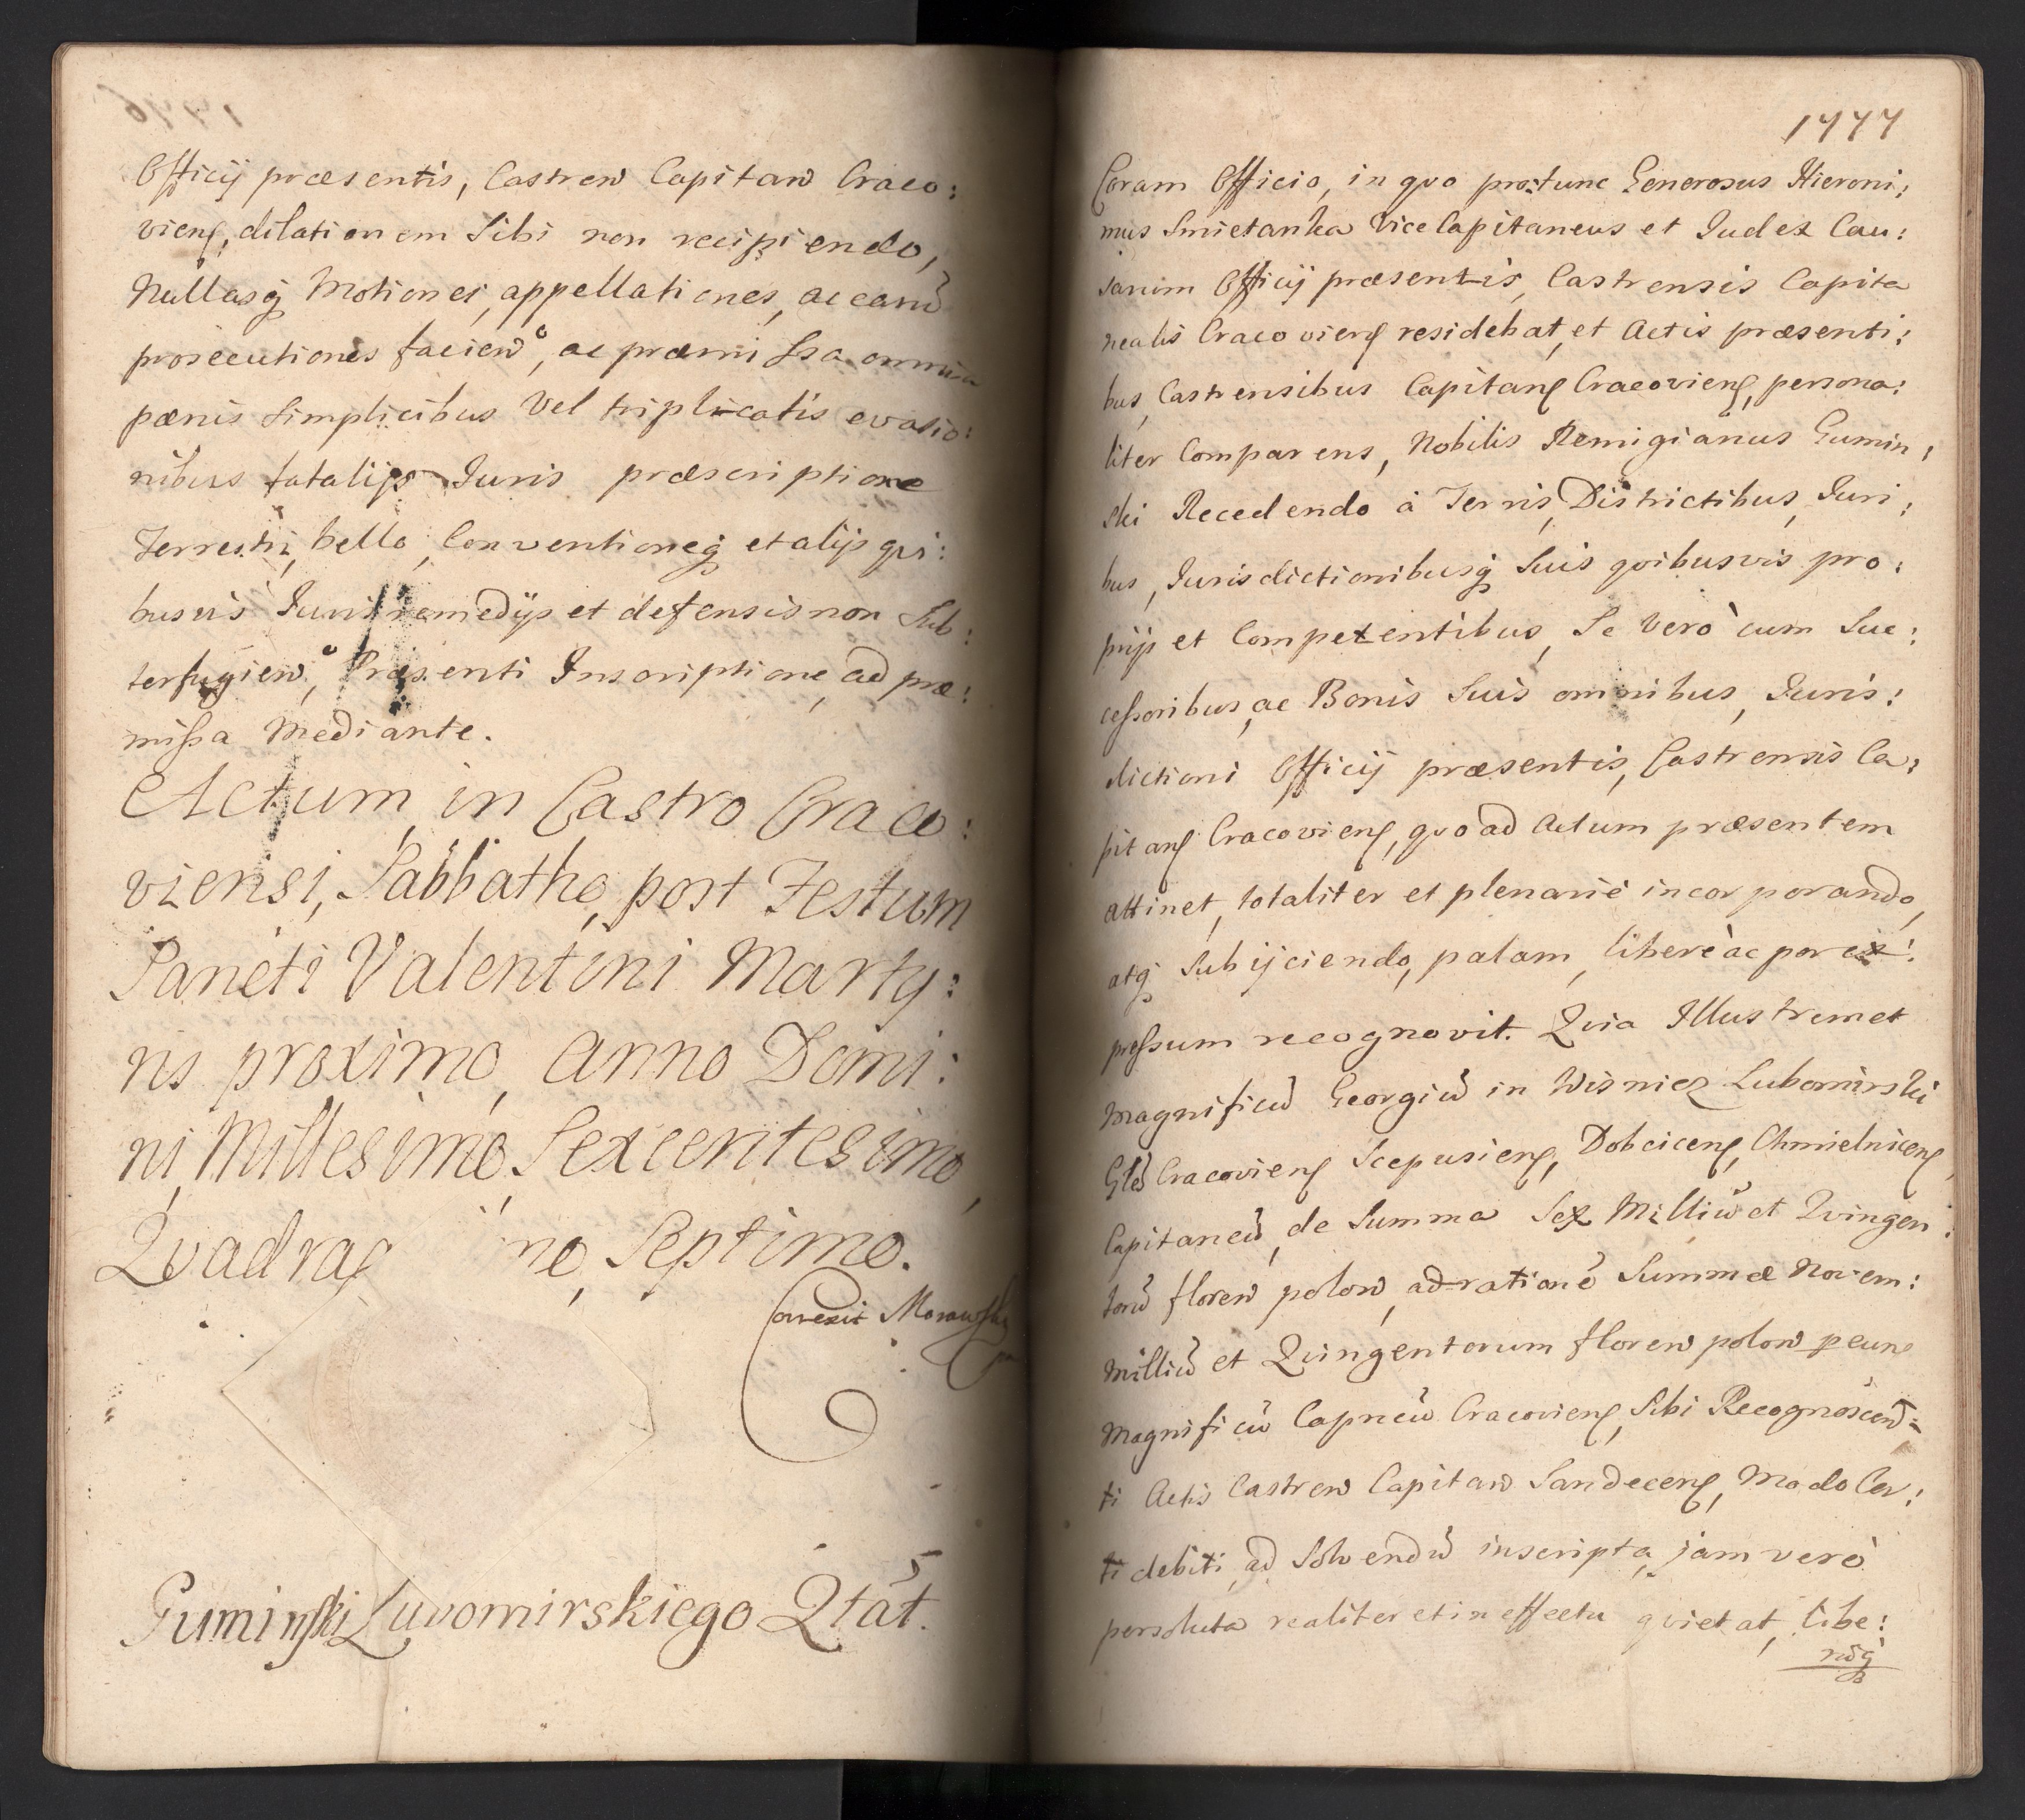 Officij præsentis, Castren Capitan Craco:
vienˢ, dilationem Sibi non recipiendo,
Nullasq̃ Motiones, appellationes, ac earũ
prosecutiones facienᵒ, ac præmissa omnia
pænis simplicibus Vel triplicatis evasio:
nibus fatalijs Iuris præscriptione
Terrestri, bello, Conventioneq̃ et alijs qvi:
busvis Iuris remedijs et defensis non Sub:
terfugienᵒ, Præsenti Inscriptione, ad præ:
missa Mediante.
Actum in Castro Craco:
viensi, Sabbatho, post Festum
Sancti Valentini Marty:
ris proximo, Anno Domi:
ni, Millesimo, Sexcentesimo,
Qvadrag mo, Septimo.
Correxit Morawski
Guminski Luvomirskiego Qtat.
1777
Coram Officio, in qvo protunc Generosus Hieroni:
mus Smietanka ViceCapitaneus et Iudex Cau:
sarum Officij præsentis, Castrensis Capita
nealis Cracovienˢ residebat, et Actis præsenti:
bus, Castrensibus Capitanˢ Cracovienˢ, persona:
liter Comparens, Nobilis Remigianus Gumin:
ski Recedendo à Terris, Districtibus, Iuri:
bus, Jurisdictionibusq̃ Suis qvibusvis pro:
prijs et Competentibus, Se Verò cum Suc:
cessoribus, ac Bonis Suis omnibus, Juris:
dictioni Officij præsentis, Castrensis Ca:
pitanˢ Cracovienˢ, qvo ad Actum præsentem
attinet, totaliter et plenariè incorporando,
atq̃ Subijciendo, palam, liberè ac per ex:
pressum recognovit. Qvia Illustrem et
Magnificũ Georgiũ in Wisnicz Lubomirski
Glẽ Cracovienˢ Scepusienˢ, Dobcicenˢ, Chmielnicenˢ,
Capitaneũ, de Summa Sex Milliũ et Qvingen:
torũ floren polon, ad rationẽ Summæ Novem:
Milliũ et Qvingentorum floren polon p eunᵈ
Magnificũ Capneũ Cracovienˢ, Sibi Recognoscenᵗ:
ti Actis Castren Capitan Sandecenˢ, Modo Cer:
ti debiti, ad Solvendũ inscripta, jam verò
persoluta realiter et in effectu qvietat, libe:
rũq̃